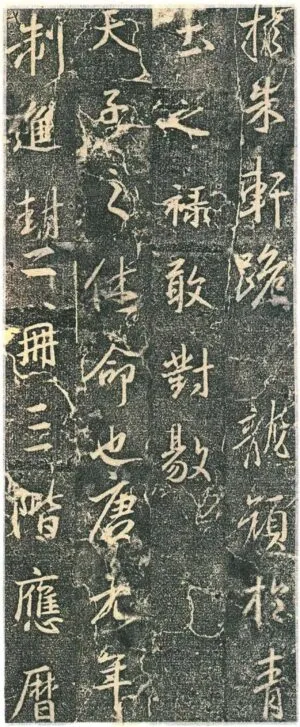 朱軒 龍於青
土之祿敢對敭
天子之休命也唐元年
制進封二冊三階應曆